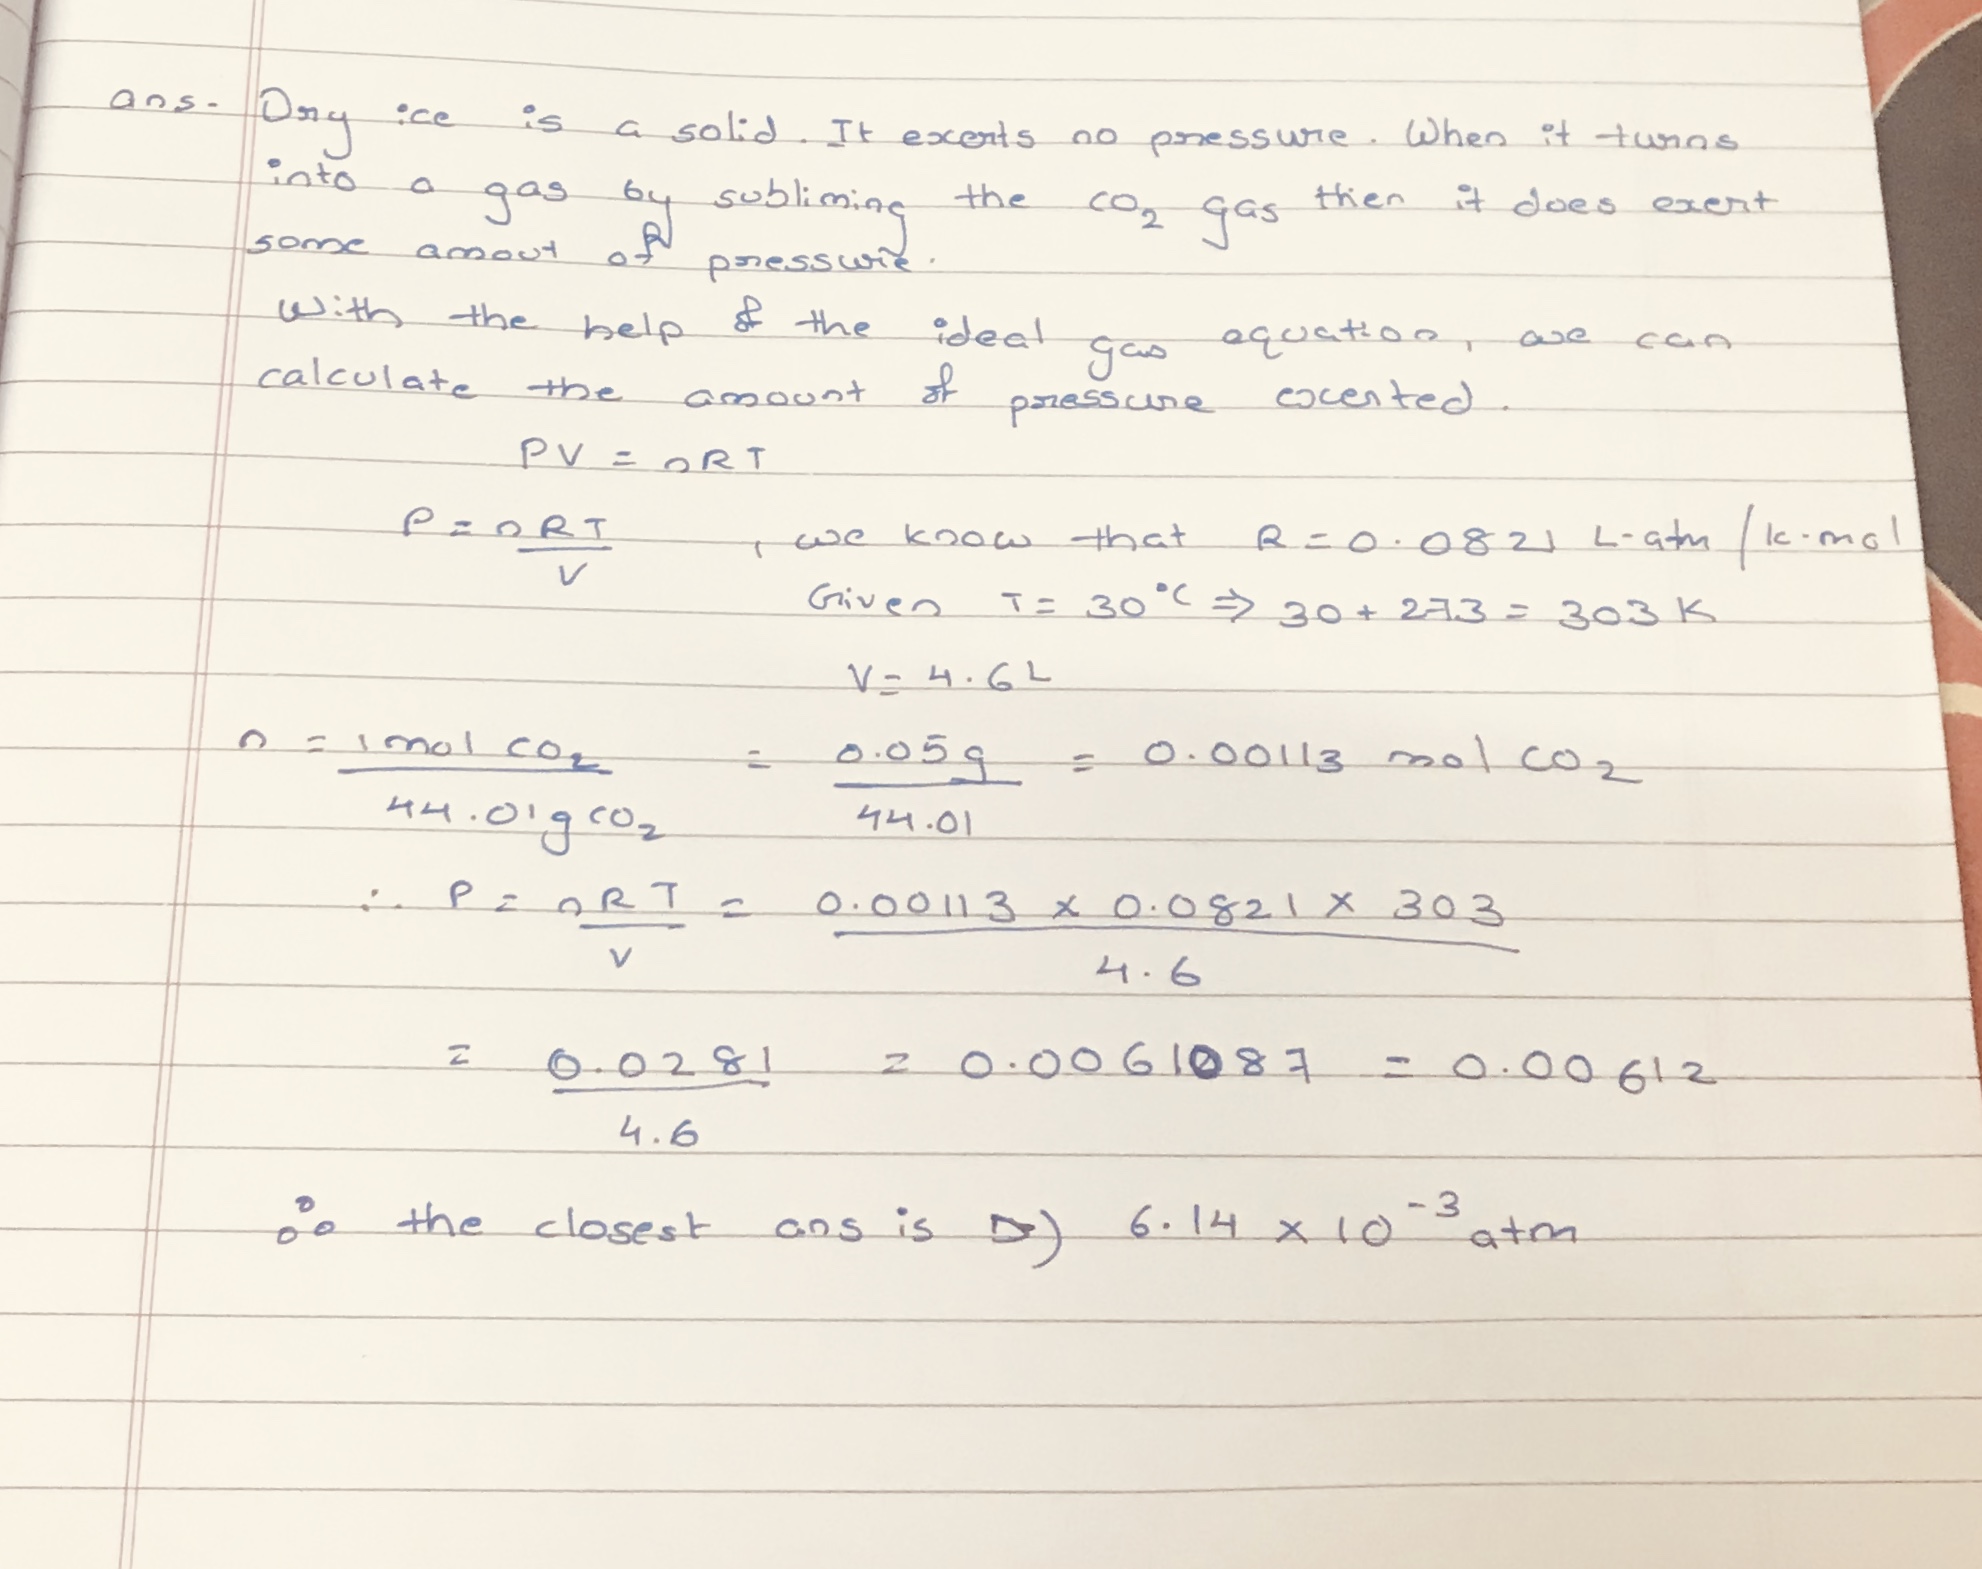 ans. Dry ice is a solid. It exerts no pressure. When it turns
into a gas by subliming the CO2 gas then it does exert
some amout of pressure.
With the help of the ideal gas equation, we can
calculate the amount of pressure excerted.
PV = nRT
P = nRT / V , we know that R = 0.0821 L-atm / k.mol
Given T = 30°C ⇒ 30 + 273 = 303 K
V = 4.6 L
n = 1 mol CO2 / 44.01g CO2 = 0.05g / 44.01 = 0.00113 mol CO2
∴ P = nRT / V = 0.00113 × 0.0821 × 303 / 4.6
= 0.0281 / 4.6 = 0.0061087 = 0.00612
∴ the closest ans is D) 6.14 × 10^-3 atm